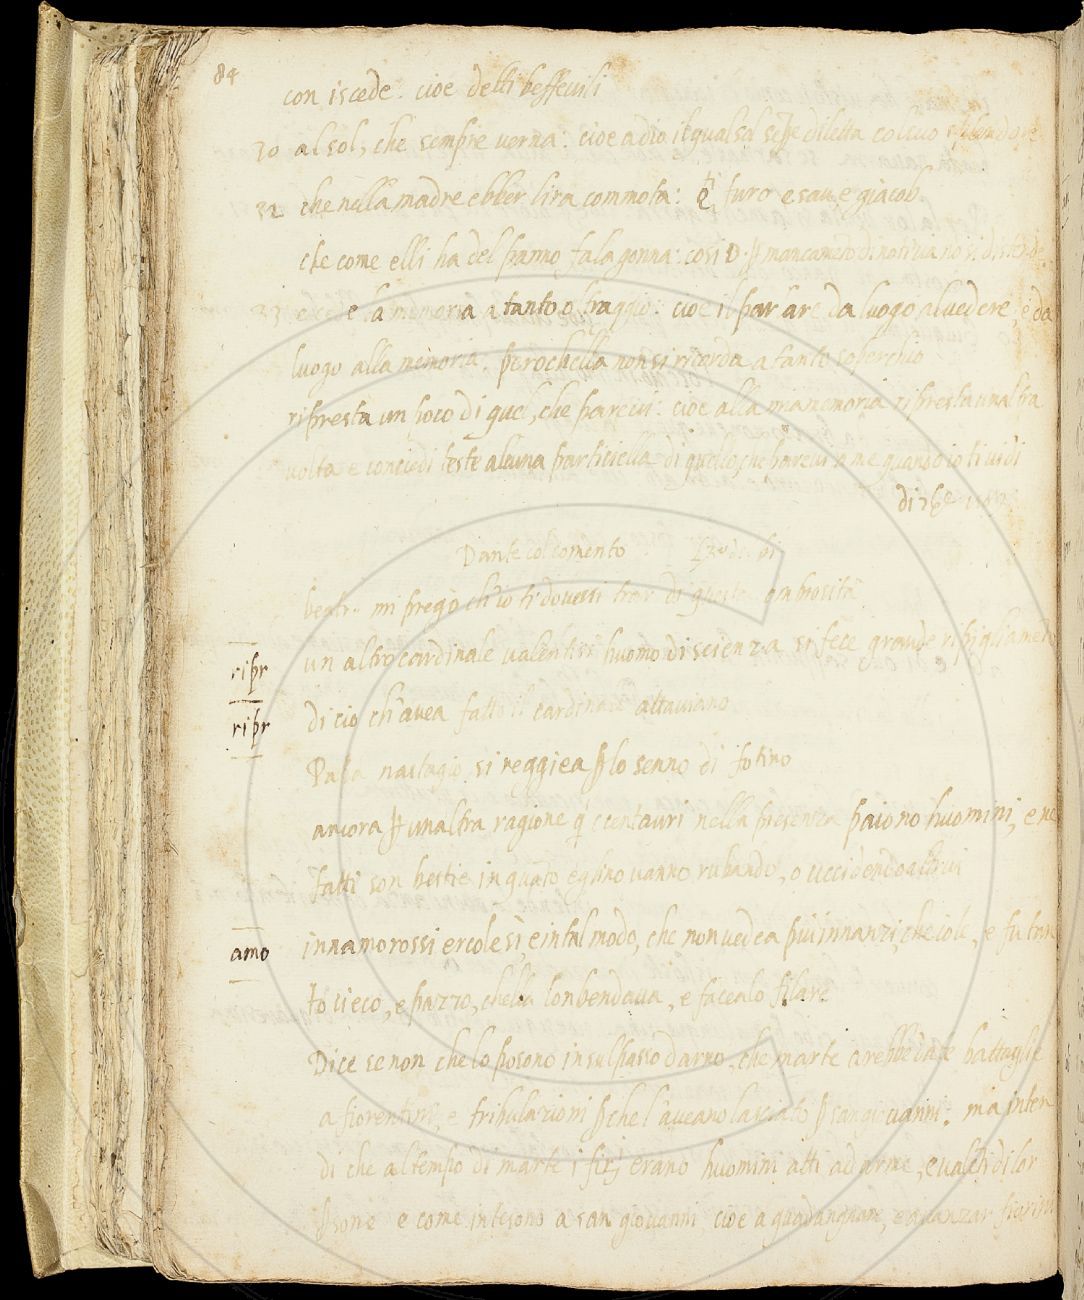 84
con iscede. cioe detti beffevili
30 al sol, che sempre verna: cioe a dio il qual sol sempre diletta col suo splendore
32 che nella madre ebber lira commota: furo esau e giacob
che come elli ha del panno fa la gonna: cosi D. mancameto di notitia no si distende
33 e cede la memoria a tanto oltraggio: cioe il parlare da luogo al vedere, e da
luogo alla memoria. perochella non si ricorda a tanto soperchio
ripresta un poco di quel, che parevi: cioe alla mia memoria ripresta unaltra
volta e concedi teste alcuna particiella di quello che parevi a me quando io ti vidi
Dante col comento
beatr. mi pregò ch'io ti dovessi trar di queste ombrosità
ripr un altro cardinale valentisi huomo di scienza si fece grande ripigliameto
ripr di cio ch'avea fatto il cardinale attaviano
Papa nastagio si reggiea p lo senno di fotino
ancora p unaltra ragione q centauri nella presenza paiono huomini, e ne
fatti son bestie in quato eglino vanno rubando, o uccidendo altrui
amo innamorossi ercole sì, e in tal modo, che non vedea più innanzi, che iole, e fu tan
to cieco, e pazzo, chella lonbendava, e facealo filare
Dice se non che lo posono in sul passo darno, che marte arebbe date battaglie
a fiorentini, e tribulazioni p che l'aveano lasciato p san giovanni: ma inten
di che al tempo di marte i fij erano huomini atti ad arme, e valeti di lor
psone e come intesono a san giovanni cioe a guadangnare, e avanzar fiorini